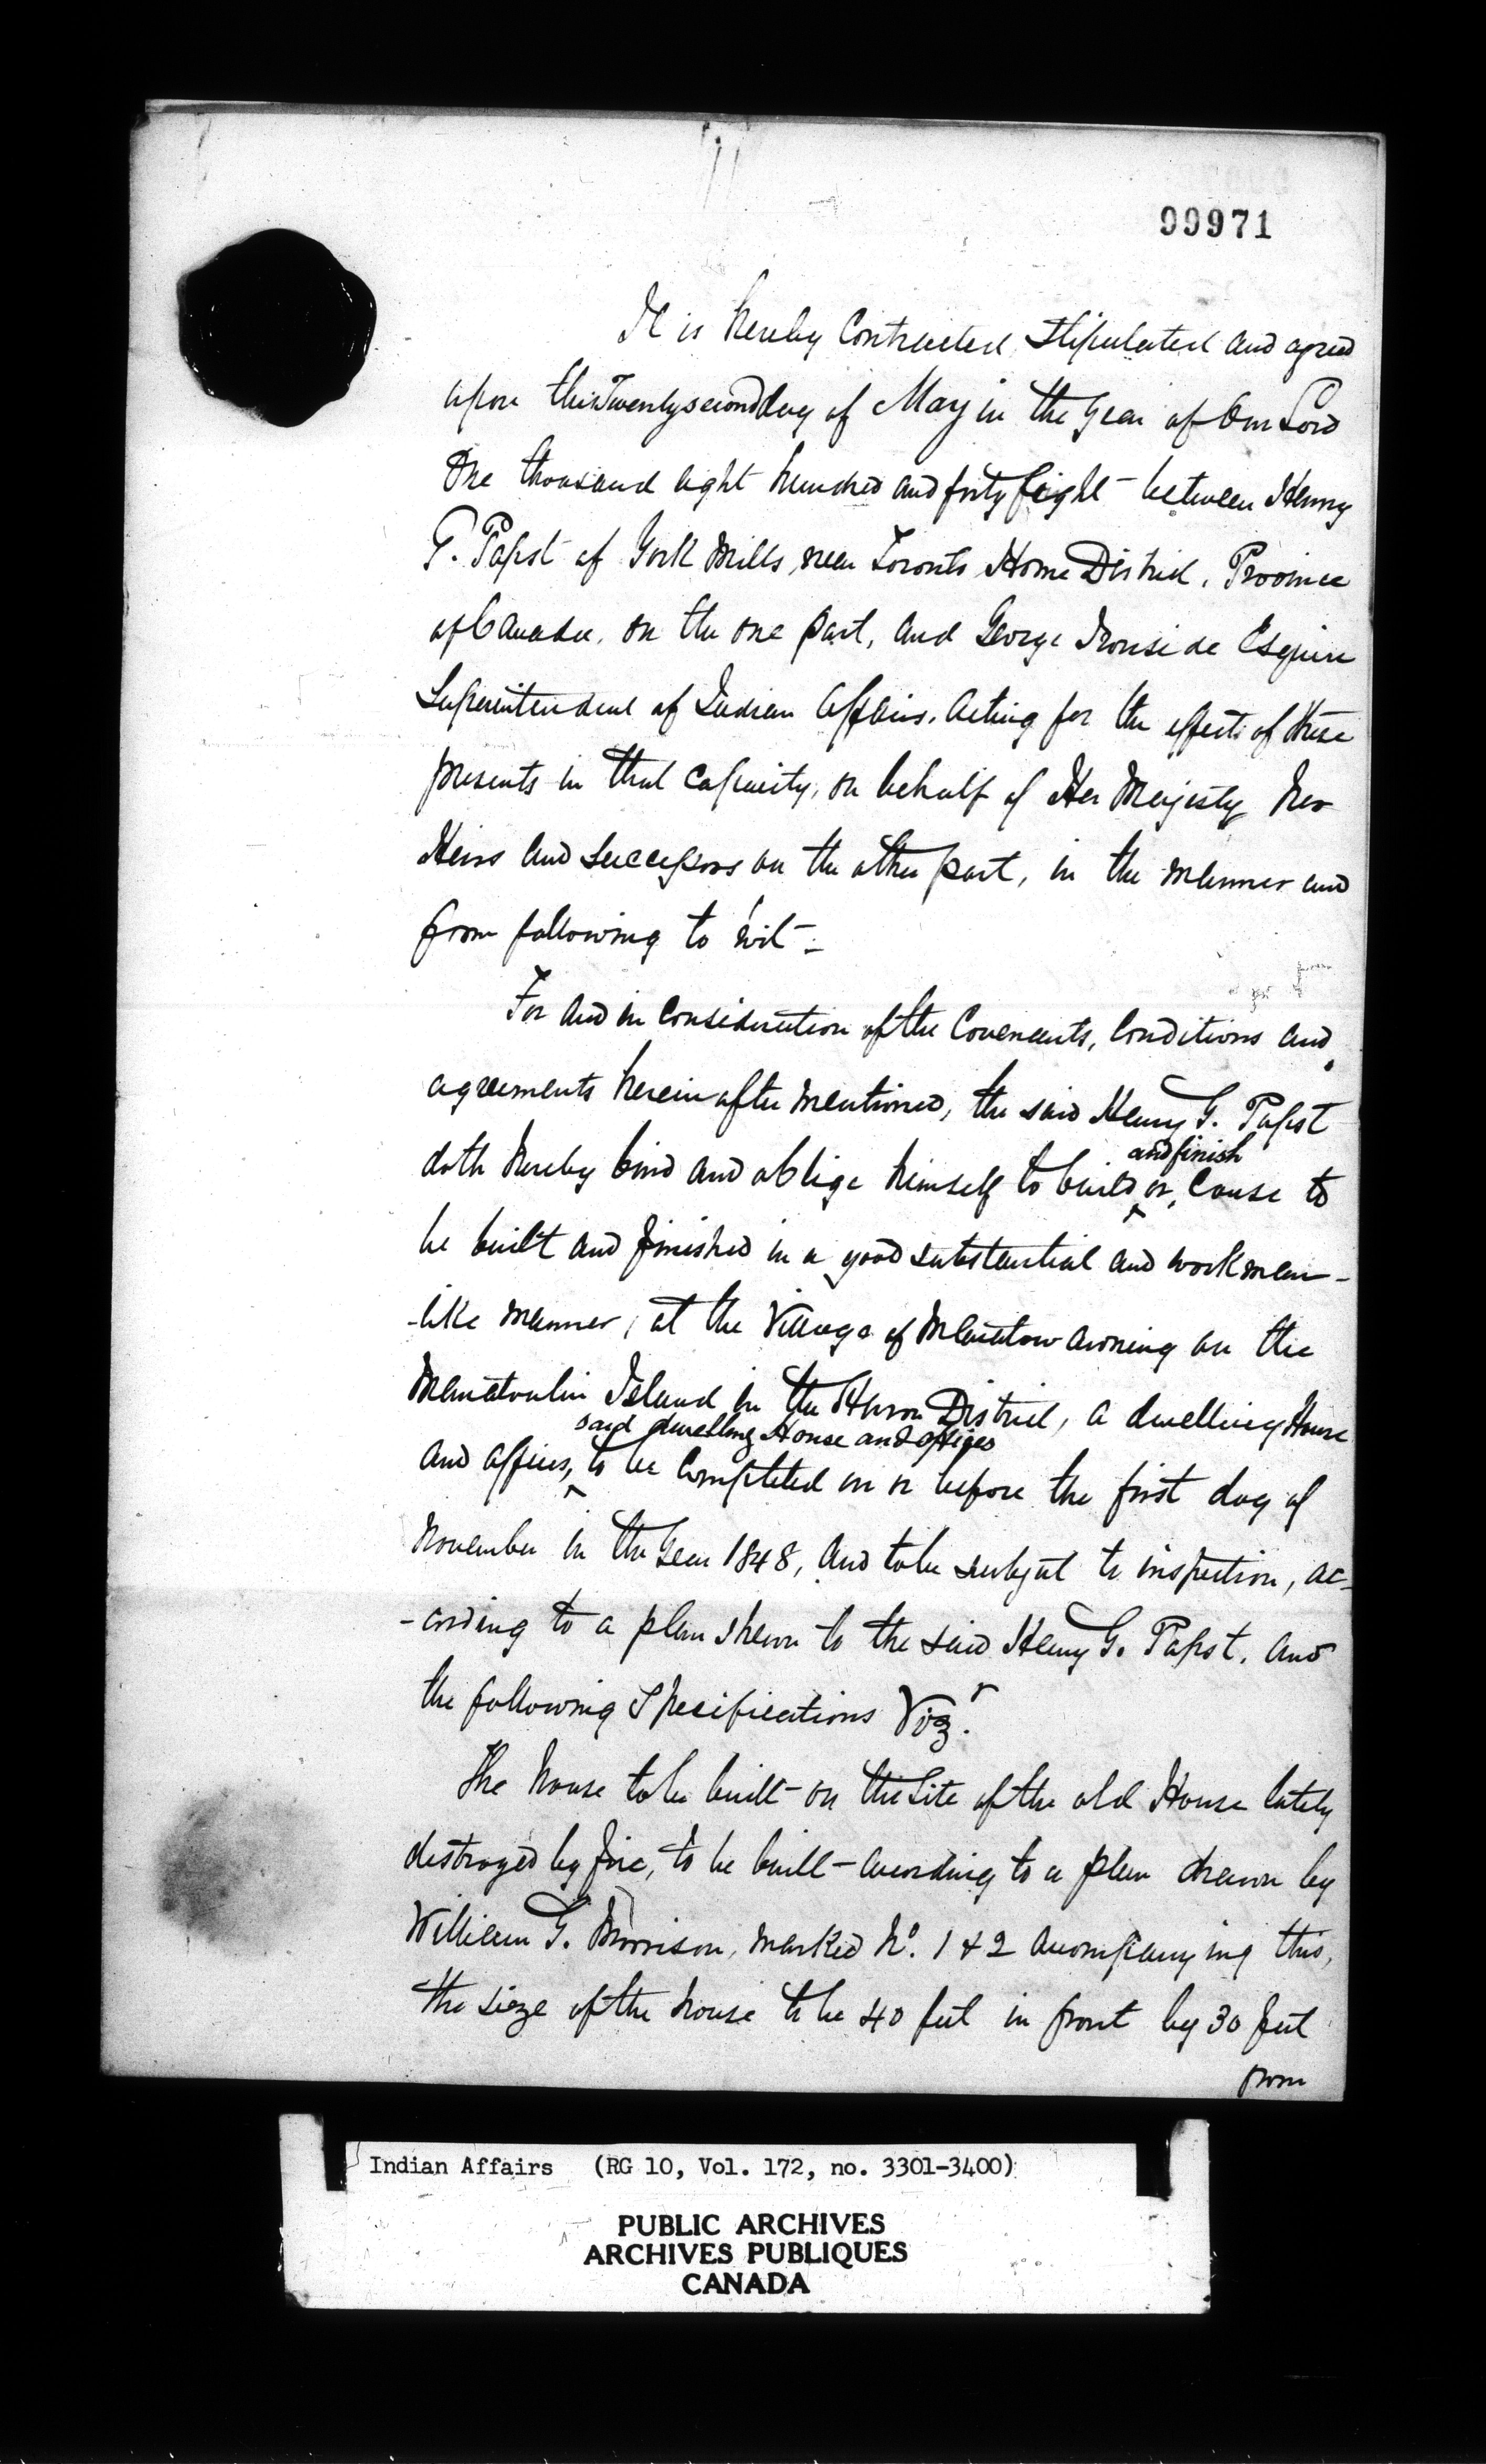 99971
It is hereby Contracted, Stipulated and agreed
upon this Twenty second day of May in the year of Our Lord
One thousand eight hundred and forty Eight - between Henry
G. Papst of York Mills, near Toronto Home District, Province
of Canada, on the one part, and George Ironside Esquire
Superintendent of Indian Affairs, acting for the effect of these
presents in that Capacity, on behalf of Her Majesty her
Heirs and Successors on the other part, in the manner and
form following to wit -
For and in Consideration of the Covenants, Conditions and
agreements herein after mentioned, the said Henry G. Papst
and finish
doth hereby bind and oblige himself to build or, Cause to
be built and finished in a good substantial and workman-
-like manner, at the Village of Manitowawning on the
Manatoulin Island in the Huron District, a dwelling House
said dwelling House and offices
and offices, to be Completed on or before the first day of
November in the Year 1848, and to be subject to inspection, ac-
-cording to a plan shewn to the said Henry G. Papst, and
the following Specifications Vizr.
The house to be built on the Site of the old House lately
destroyed by fire, to be built - according to a plan drawn by
William G. Morrison, marked No. 1 & 2 accompanying this,
the sieze of the house to be 40 feet in front by 30 feet
from
Indian Affairs (RG 10, Vol. 172, no. 3301-3400)
PUBLIC ARCHIVES
ARCHIVES PUBLIQUES
CANADA